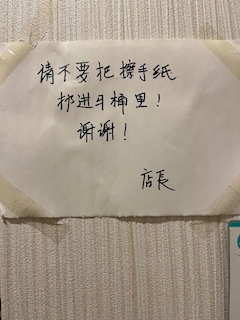 请不要把擦手纸
扔进马桶里！
谢谢！
店長